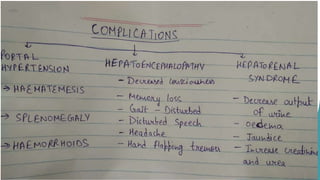 COMPLICATIONS
PORTAL
HYPERTENSION
→ HAEMATEMESIS
→ SPLENOMEGALY
→ HAEMORRHOIDS
HEPATOENCEPHALOPATHY
- Decreased consciousness
- Memory loss
- Gait - Disturbed
- Disturbed Speech
- Headache
- Hand flapping tremors
HEPATORENAL
SYNDROME
- Decrease output
of urine
- oedema
- Jaundice
- Increase creatinine
and urea